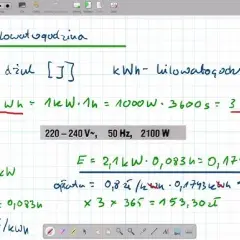 kilowatogodzina
dżul [J] kWh - kilowatogodz
Wh = 1kW·1h = 1000W · 3600s = 3
220 – 240 V~, 50 Hz, 2100 W
E = 2,1kW·0,083h = 0,174
kW
opłata = 0,8 zł/kWh · 0,1743 kWh
0,083h × 3 × 365 = 153,30zł
zł/kWh